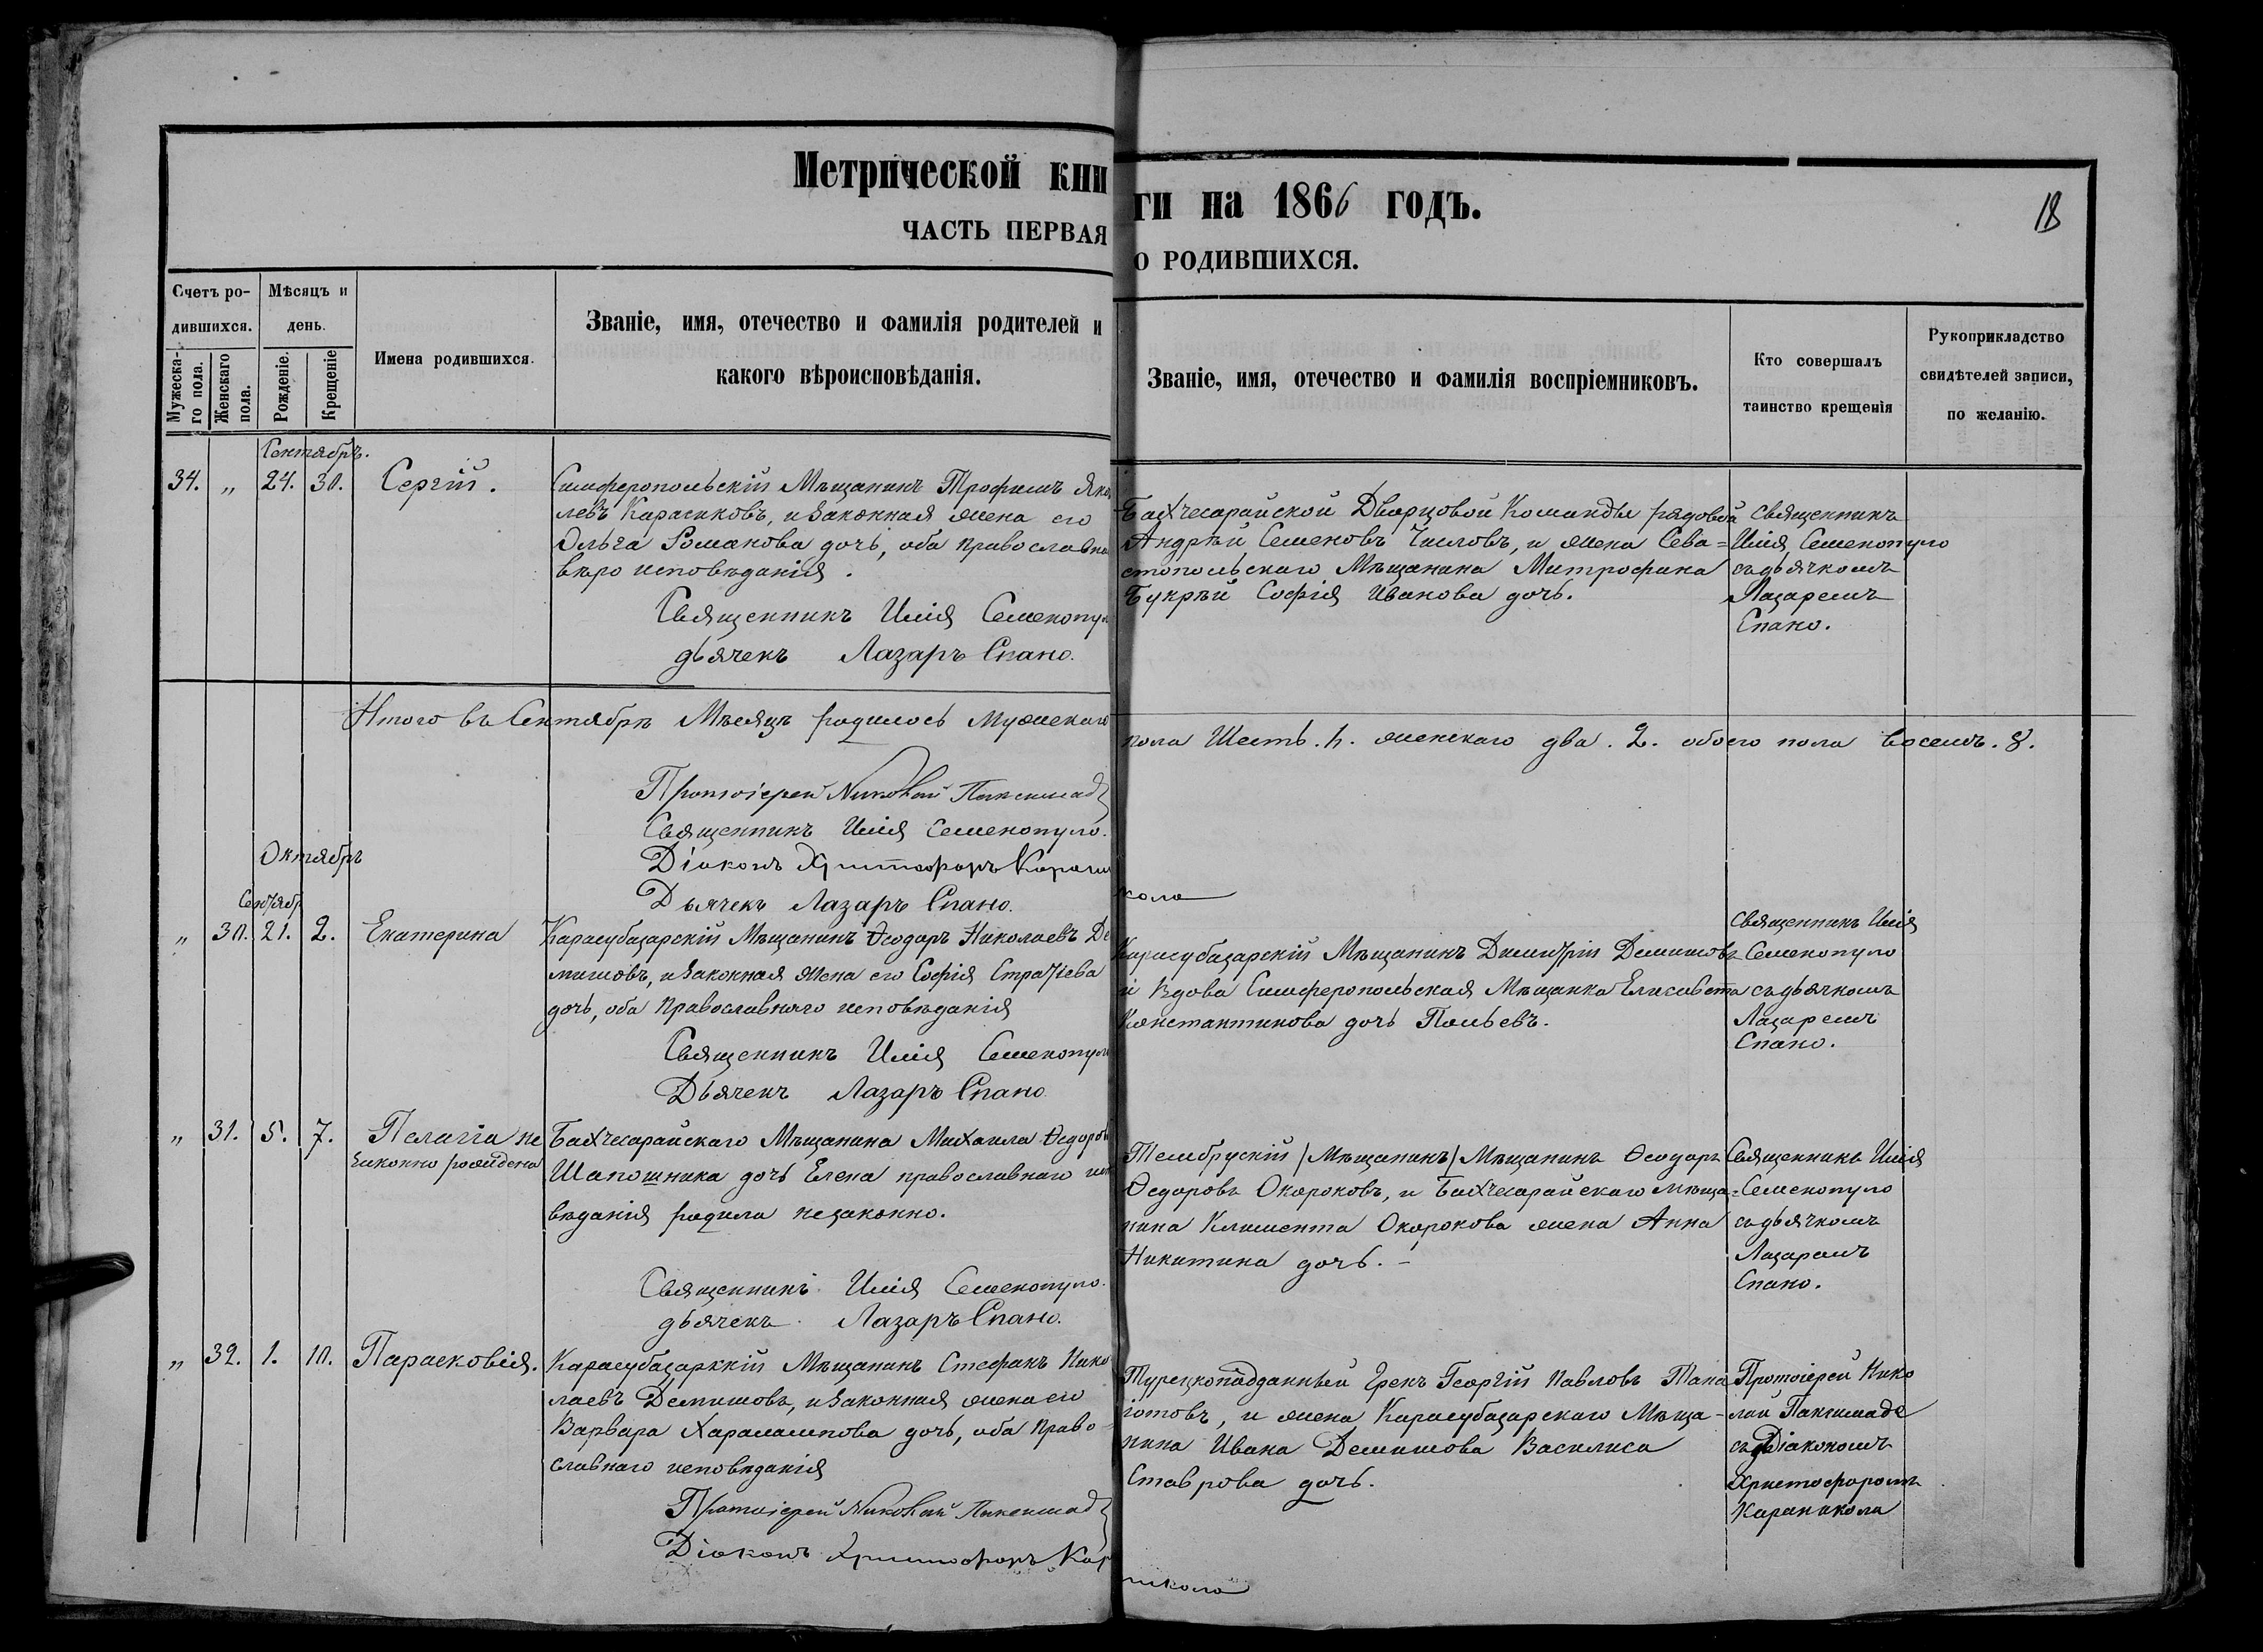 Метрической кни
ги на 1866 годъ.
18
ЧАСТЬ ПЕРВАЯ
О РОДИВШИХСЯ.
Счетъ ро-
дившихся.
Мужеска-
го пола.
Женскаго
пола.
Мѣсяцъ и
день.
Рожденіе.
Крещеніе
Имена родившихся.
Званіе, имя, отечество и фамилія родителей и
какого вѣроисповѣданія.
Званіе, имя, отечество и фамилія воспріемниковъ.
Кто совершалъ
таинство крещенія
Рукоприкладство
свидѣтелей записи,
по желанію.
Сентябрь.
34. „ 24. 30. Сергій.
Симферопольскій Мѣщанинъ Трофимъ Яко
левъ Карасиковъ, и законная жена его
Ольга Романова дочь, оба православна
вѣро исповѣданія.
Священникъ Илія Семенопул
дьячекъ Лазаръ Спано.
Бахчесарайской Дворцовой Команды рядовой
Андрѣй Семеновъ Числовъ, и жена Сева=
стопольскаго Мѣщанина Митрофана
Букрѣй Софія Иванова дочь.
священникъ
Илія Семенопуло
съ дьячкомъ
Лазаремъ
Спано.
Итого въ Сентябрѣ Мѣсяцѣ родилось Мужескаго
пола Шесть. 6. женскаго два. 2. обоего пола восемь. 8.
Протоіерей Николай Паксимад
Священникъ Илія Семенопуло.
Діаконъ Христофоръ Карани
кола
Дьячекъ Лазаръ Спано.
Октябрь
Сентябр
„ 30. 21. 2. Екатерина
Карасубазарскій Мѣщанинъ Ѳеодоръ Николаевъ Де
мишовъ, и законная жена его Софія Стратіева
дочь, оба православнаго исповѣданія
Священникъ Илія Семенопул
Дьячекъ Лазаръ Спано
Карасубазарскій Мѣщанинъ Димитрій Демишовъ
и вдова Симферопольская Мѣщанка Елисавета
Константинова дочь Польевъ.
Священникъ Илія
Семенопуло
съ дьячкомъ
Лазаремъ
Спано.
„ 31. 5. 7. Пелагія не
законно рождена
Бахчесарайскаго Мѣщанина Михаила Ѳедоров
Шапошника дочь Елена православнаго испо
вѣданія родила незаконно.
Священникъ Илія Семенопуло.
дьячекъ Лазаръ Спано.
Тембрускій /Мѣщанинъ/ Мѣщанинъ Ѳеодоръ
Ѳедоровъ Окороковъ, и Бахчесарайскаго мѣща=
нина Климента Окорокова жена Анна
Никитина дочь.
Священникъ Илія
Семенопуло
съ дьячкомъ
Лазаремъ
Спано.
„ 32. 1. 10. Парасковія.
Карасубазарккій Мѣщанинъ Стефанъ Нико
лаевъ Демишовъ, и законная жена его
Варвара Харалампова дочь, оба право-
славнаго исповѣданія
Протоіерей Николай Паксимад
Діаконъ Христофоръ Кар
никола
Турецкоподданный Грекъ Георгій Павловъ Пана
іотовъ, и жена Карасубазарскаго Мѣща-
нина Ивана Демишова Василиса
Ставрова дочь.
Протоіерей Нико
лай Паксимаде
съ Діакономъ
Христофоромъ
Караникола